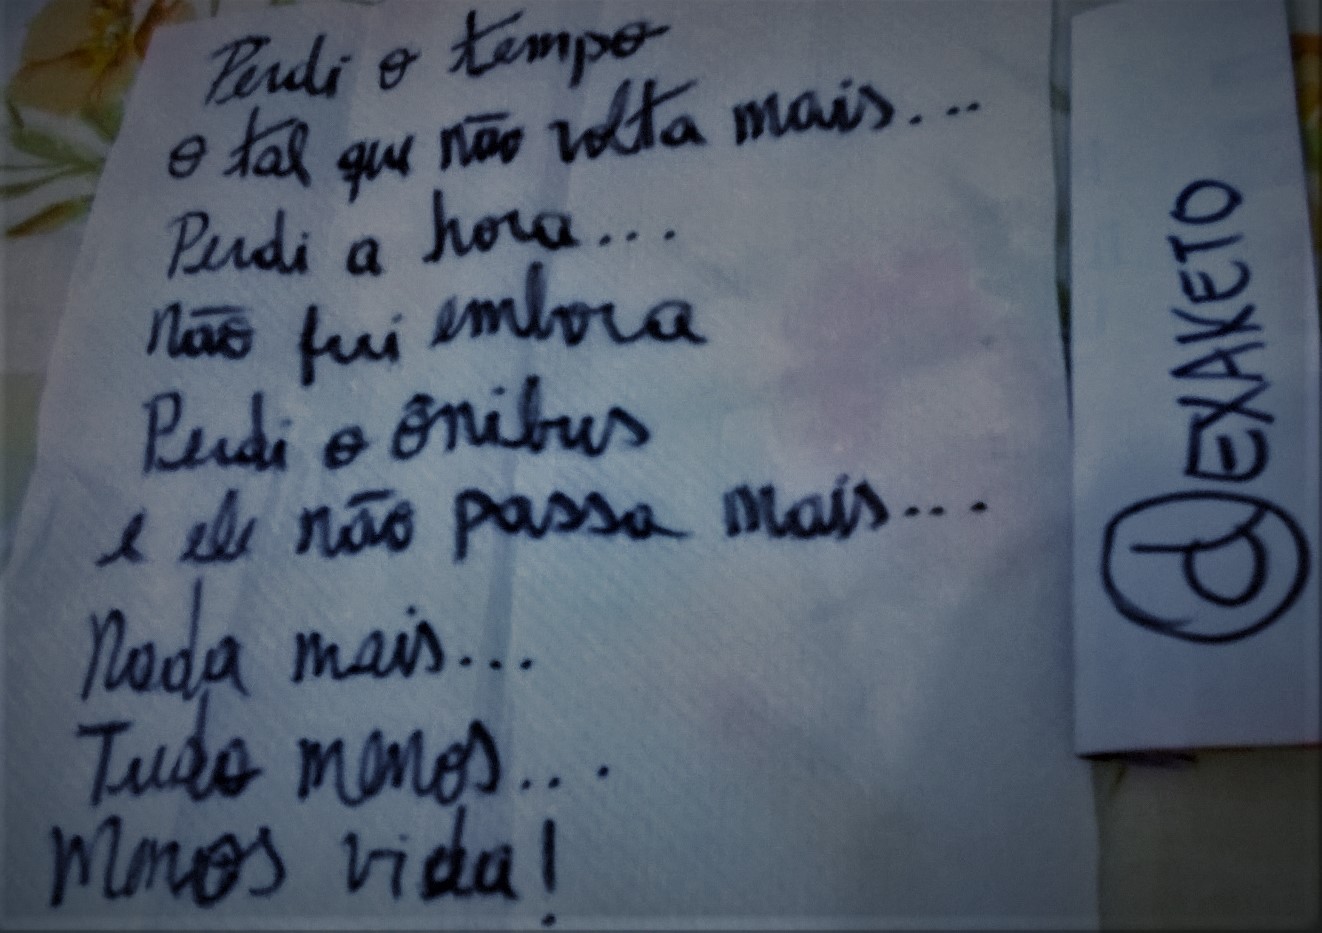 Perdi o tempo
o tal que não volta mais...
Perdi a hora...
não fui embora
Perdi o ônibus
e ele não passa mais...
Nada mais...
Tudo menos...
Menos vida!
dEXAKETO